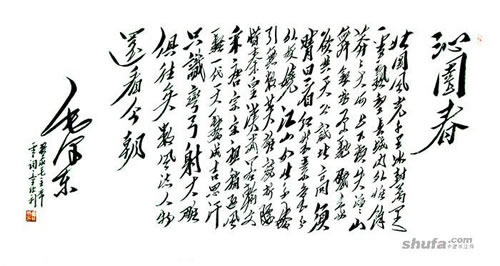 沁園春
北国风光千里冰封万里
雪飘望長城内外惟餘
莽莽大河上下顿失滔滔山
舞银蛇原驰蜡象欲
与天公试比高 须
晴日看红装素裹分
外妖娆 江山如此多娇
引无数英雄竞折腰
惜秦皇汉武略输文
采唐宗宋祖稍逊风
骚一代天骄成吉思汗
只識弯弓射大雕
俱往矣数风流人物
還看今朝
毛泽东
shufa.com